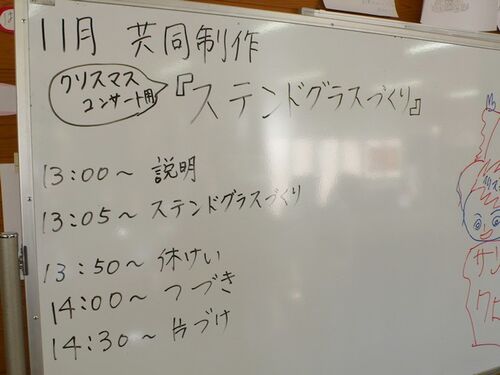 11月 共同制作
クリスマス
コンサート用
『ステンドグラスづくり』
13:00～ 説明
13:05～ ステンドグラスづくり
13:50～ 休けい
14:00～ つづき
14:30～ 片づけ